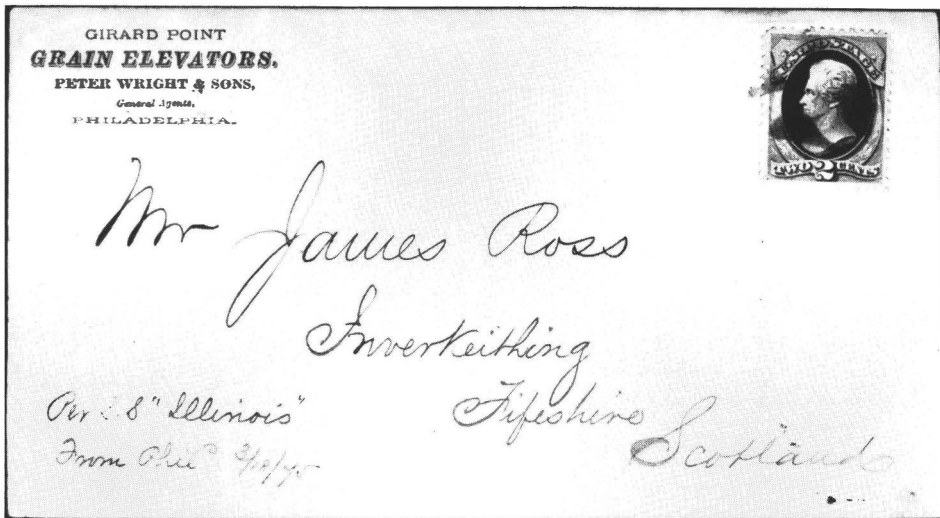 GIRARD POINT
GRAIN ELEVATORS.
PETER WRIGHT & SONS,
General Agents,
PHILADELPHIA.
U.S. POSTAGE
TWO 2 CENTS
Mr James Ross
Inverkeithing
Fifeshire
Scotland
Per S. S "Illinois"
From Phil